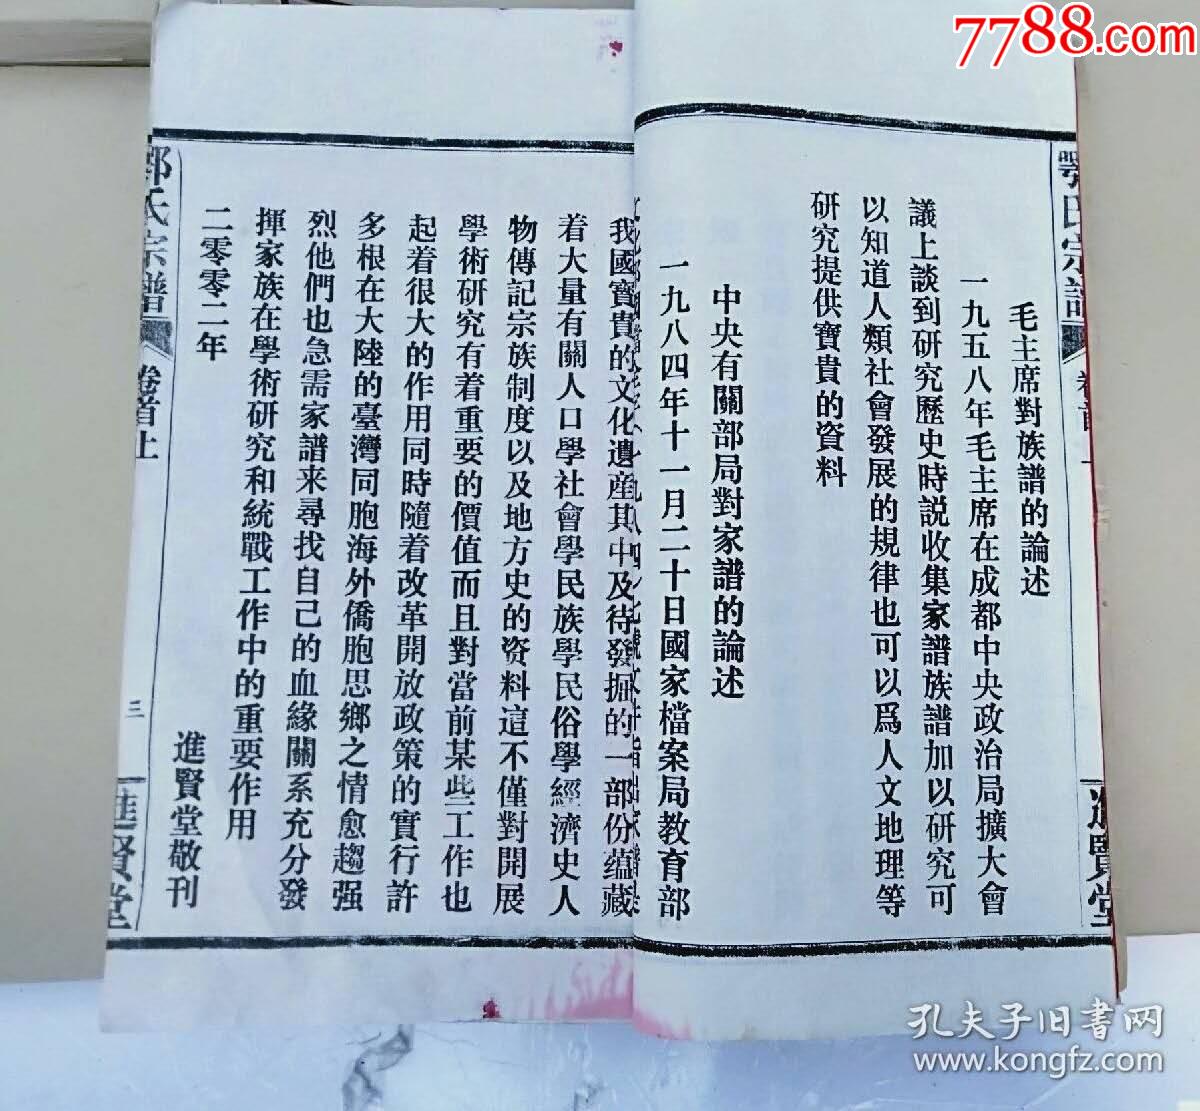 7788.com
毛主席對族譜的論述
一九五八年毛主席在成都中央政治局擴大會
議上談到研究歷史時説收集家譜族譜加以研究可
以知道人類社會發展的規律也可以爲人文地理等
研究提供寶貴的資料
中央有關部局對家譜的論述
一九八四年十一月二十日國家檔案局教育部
我國寶貴的文化遺産其中及待發掘的一部份蕴藏
着大量有關人口學社會學民族學民俗學經濟史人
物傳記宗族制度以及地方史的资料這不僅對開展
學術研究有着重要的價值而且對當前某些工作也
起着很大的作用同時隨着改革開放政策的實行許
多根在大陸的臺灣同胞海外僑胞思鄉之情愈趨强
烈他們也急需家譜来尋找自己的血緣關系充分發
揮家族在學術研究和統戰工作中的重要作用
二零零二年
進賢堂敬刊
氏宗譜
卷首上
三
進賢堂
氏宗
賢堂
孔夫子旧書网
www.kongfz.com